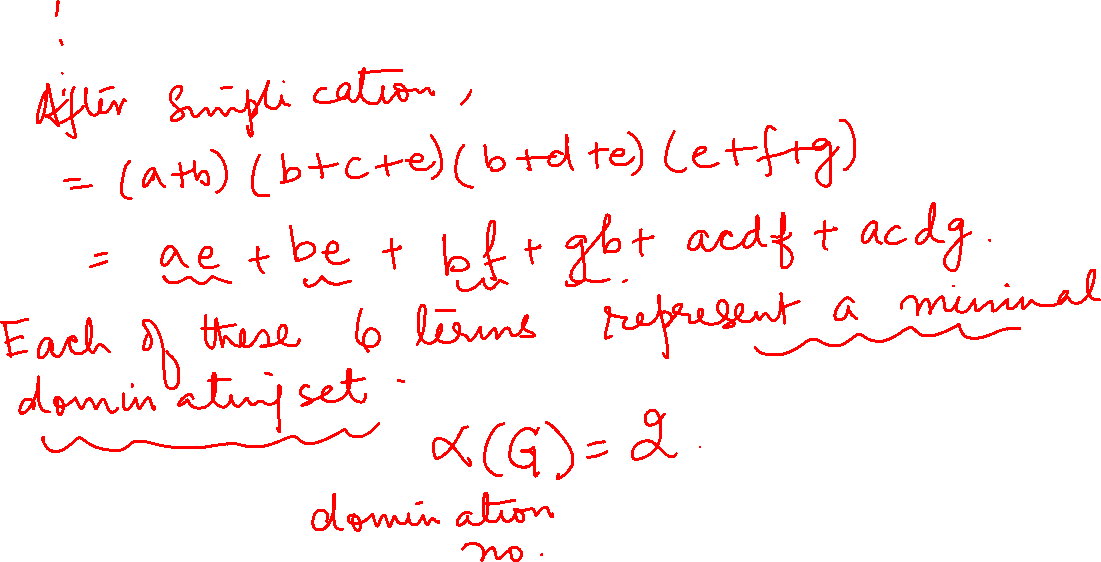 After Simplication,
= (a+b) (b+c+e) (b+d+e) (e+f+g)
= ae + be + bf + gb + acdf + acdg.
Each of these 6 terms represent a minimal
dominating set.
α(G) = 2.
domination
no.